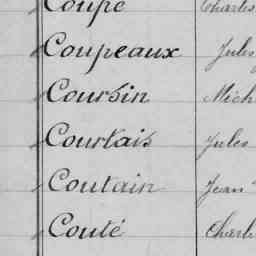 Coupé Charles
Coupeaux Jules
Coursin Mich
Courtais Jules
Coutain Jean
Couté Charl